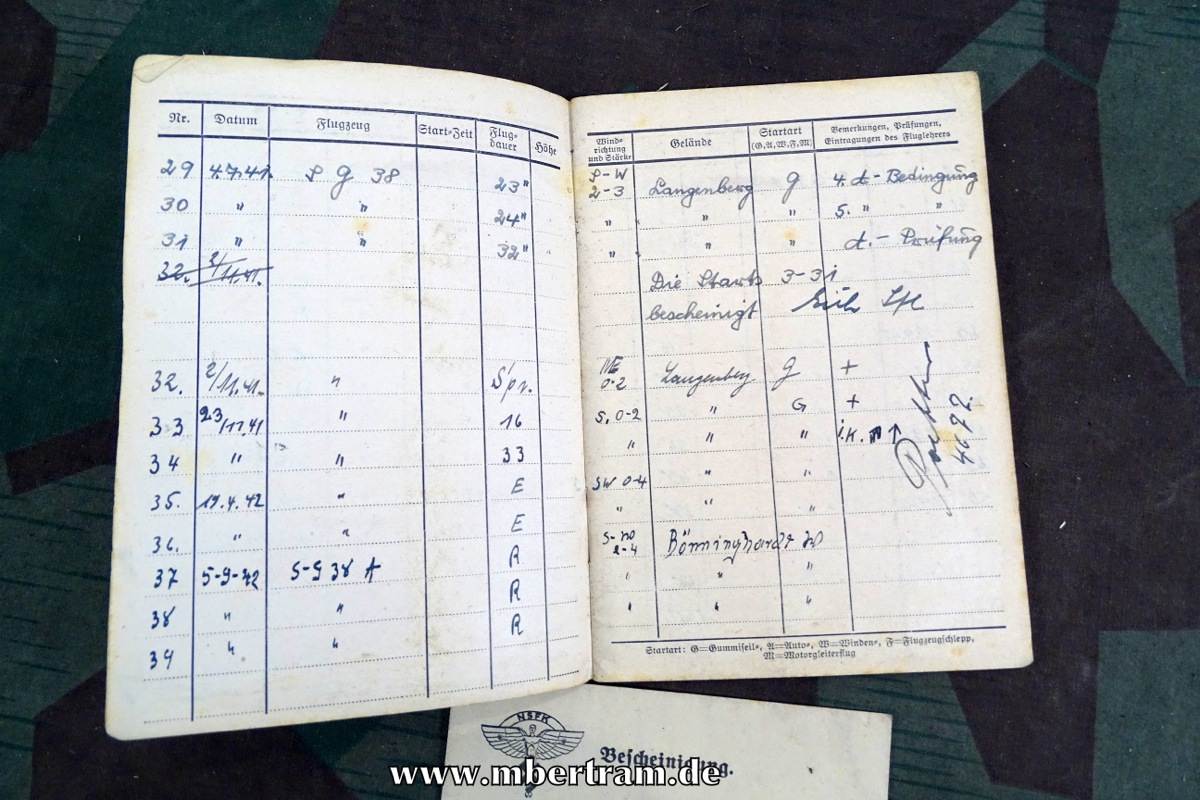 Nr. Datum Flugzeug Start-Zeit Flug-dauer Höhe
29 4.7.41. S G 38 23"
30 " " 24"
31 " " 32"
32. 2/11.41.
32. 2/11.41. " Spr.
33 23/11.41 " 16
34 " " 33
35. 19.4.42 " E
36. " " E
37 5-9-42 S-G 38 A R
38 " " R
39 " " R
Wind-richtung und Stärke Gelände Startart (G, A, W, F, M) Bemerkungen, Prüfungen, Eintragungen des Fluglehrers
S-W 2-3 Langenberg G 4. A-Bedingung
" " " 5. " "
" " " A.-Prüfung
Die Starts 3-31
bescheinigt
NE 0-2 Langenberg G +
S. 0-2 " G +
" " " i.K.
SW 0-4 " "
" " "
2-4 Bönninghardt W
" " "
" " "
4692.
Startart: G=Gummiseil=, A=Auto=, W=Winden=, F=Flugzeugschlepp,
M=Motorgleiterflug
NSFK
Bescheinigung.
www.mbertram.de